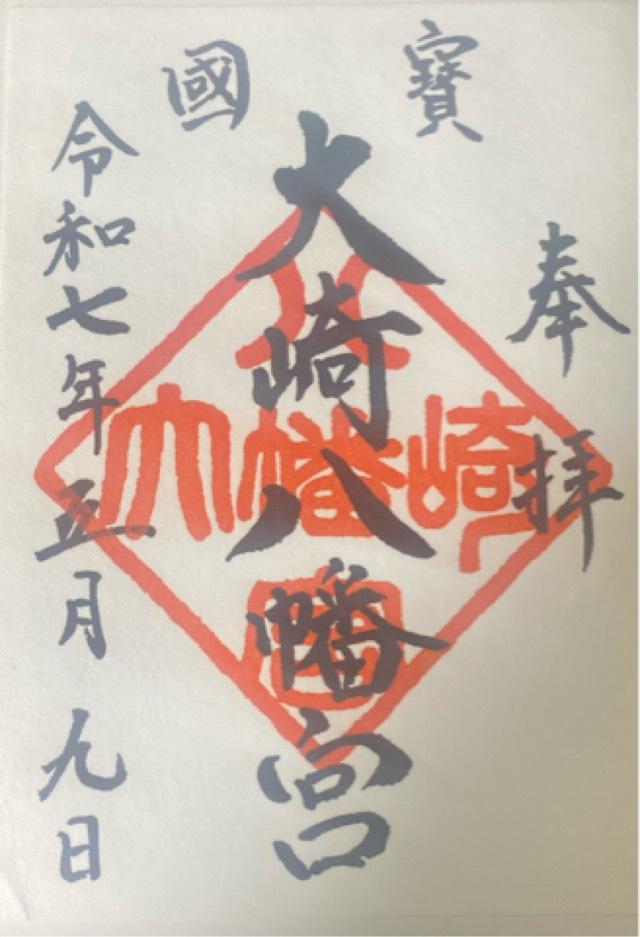 寶國
奉拝
大崎八幡宮
令和七年五月九日
大崎八幡